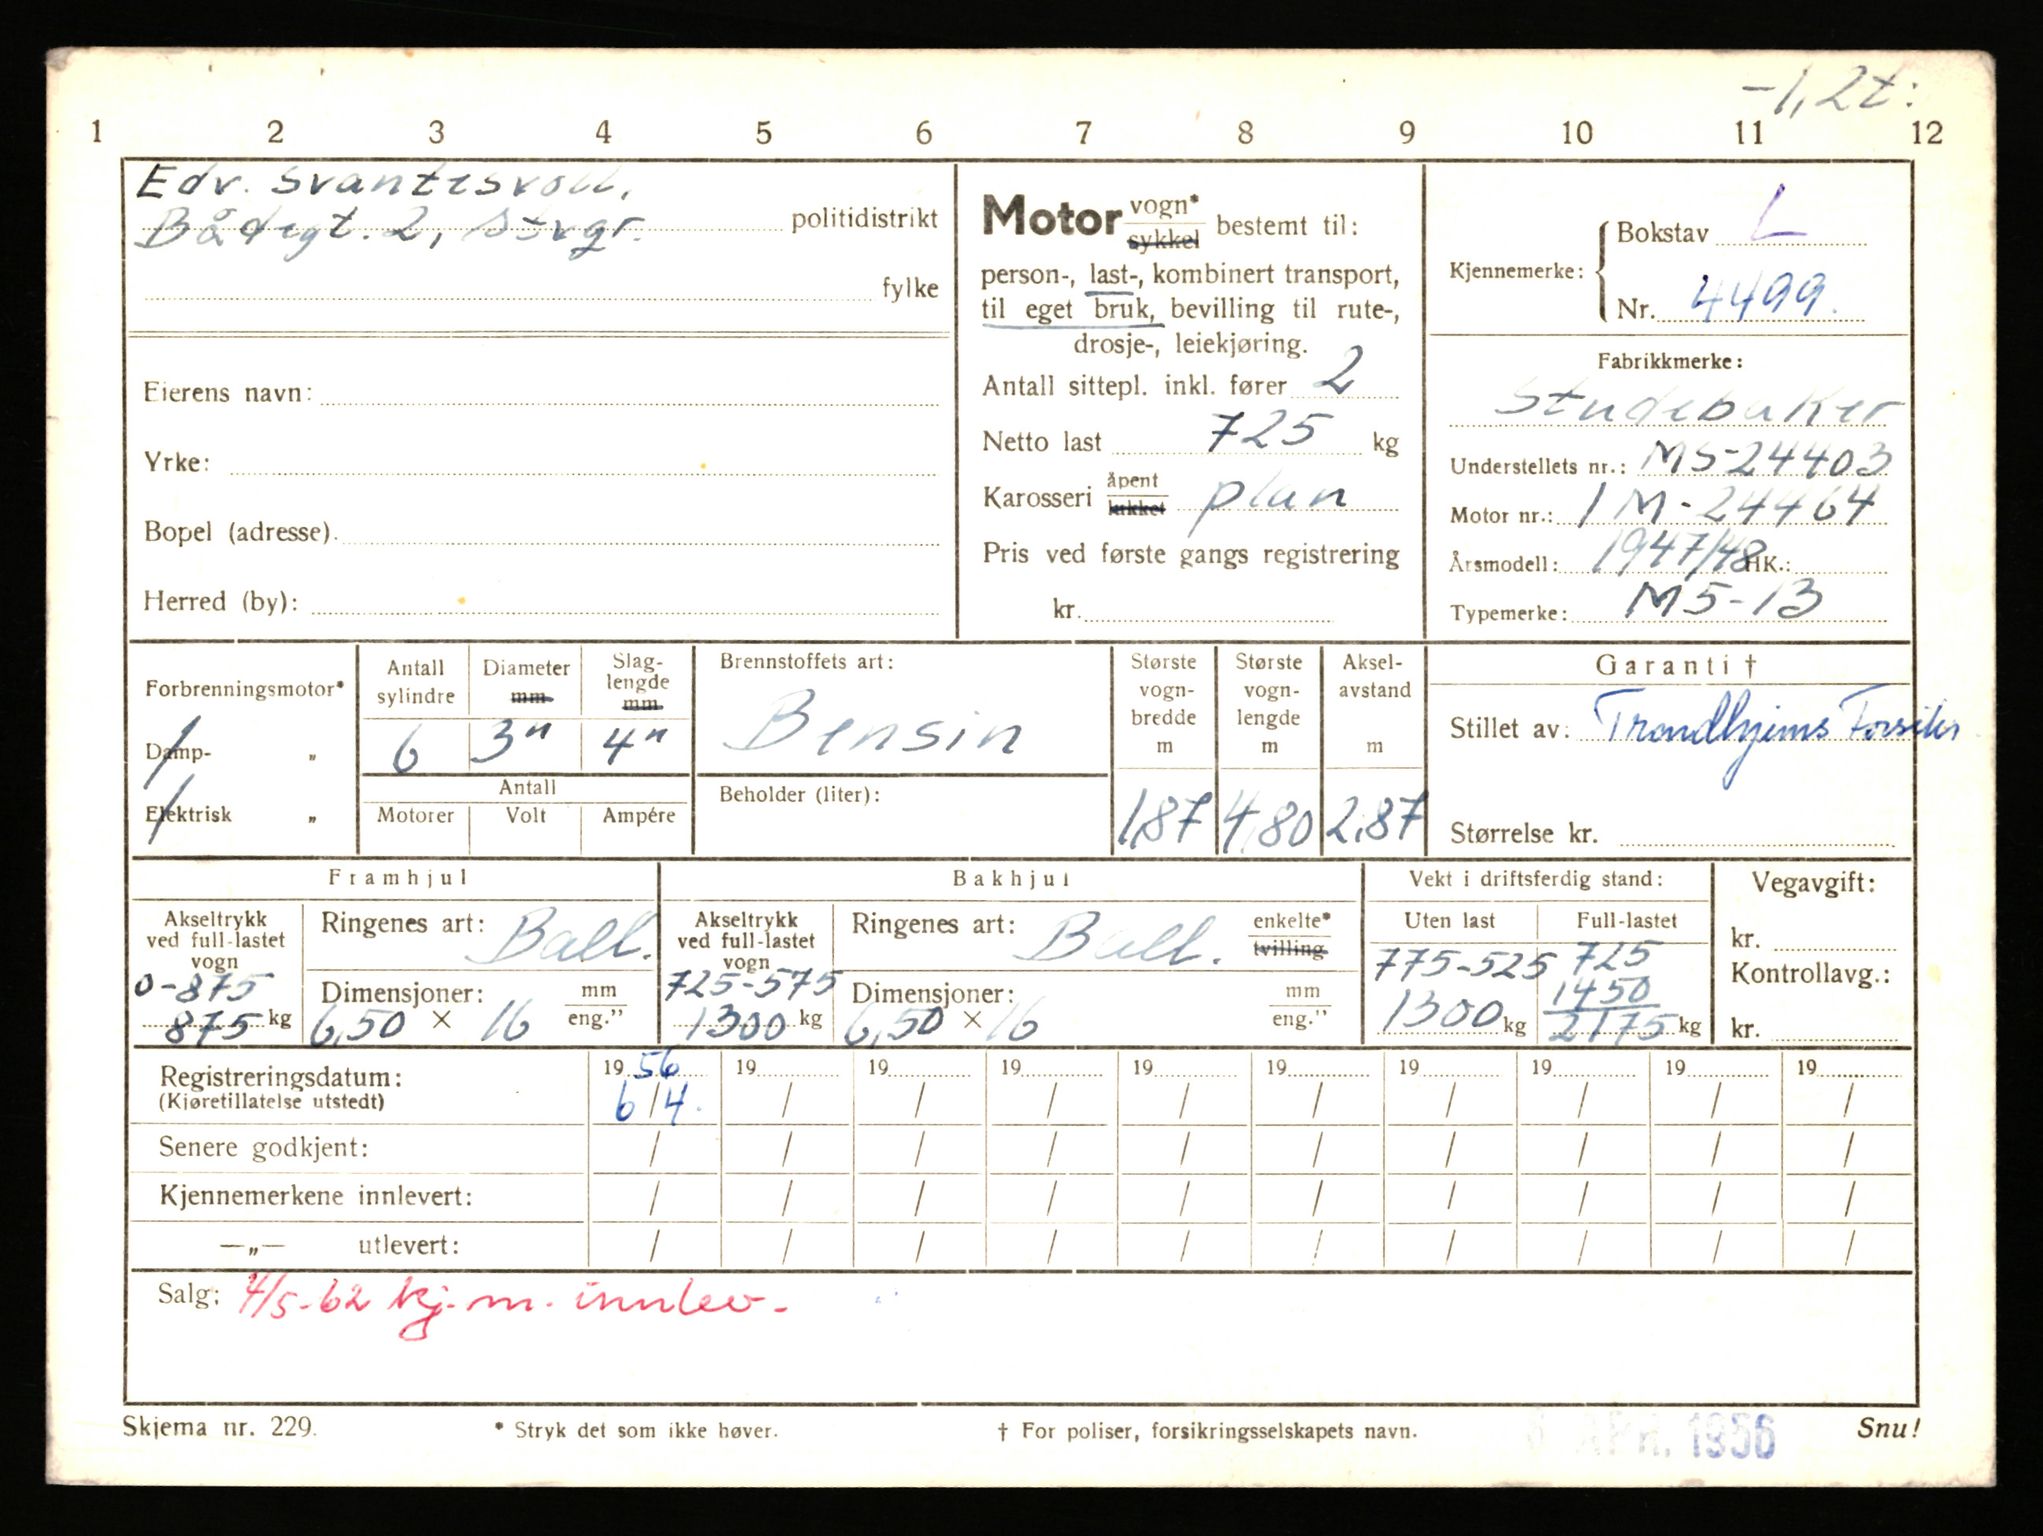 -1,2t:
1 2 3 4 5 6 7 8 9 10 11 12
Edv. Svantesvoll,
Bådsgt. 2, Stvgr. politidistrikt
fylke
Eierens navn:
Yrke:
Bopel (adresse).
Herred (by):
Motor vogn* sykkel bestemt til:
person-, last-, kombinert transport,
til eget bruk, bevilling til rute-,
drosje-, leiekjøring.
Antall sittepl. inkl. fører 2
Netto last 725 kg
Karosseri åpent lukket plan
Pris ved første gangs registrering
kr.
Kjennemerke: Bokstav L
Nr. 4499.
Fabrikkmerke:
Studebaker
Understellets nr.: M5-24403
Motor nr.: 1M-24464
Årsmodell: 1947/48 HK.:
Typemerke: M5-13
Forbrenningsmotor*
Damp- "
Elektrisk "
Antall sylindre 6
Diameter mm 3"
Slag-lengde mm 4"
Antall
Motorer Volt Ampére
Brennstoffets art:
Bensin
Beholder (liter):
Største vogn-bredde m 1,87
Største vogn-lengde m 4,80
Aksel-avstand m 2,87
Garanti †
Stillet av: Trondhjems Forsikr
Størrelse kr.
Framhjul
Akseltrykk ved full-lastet vogn
0-875
875 kg
Ringenes art: Ball.
Dimensjoner: mm
6,50 × 16 eng."
Bakhjul
Akseltrykk ved full-lastet vogn
725-575
1300 kg
Ringenes art: Ball. enkelte* tvilling
Dimensjoner: mm
6,50 × 16 eng."
Vekt i driftsferdig stand:
Uten last
775-525
1300 kg
Full-lastet
725
1450
2175 kg
Vegavgift:
kr.
Kontrollavg.:
kr.
Registreringsdatum: 19 56 19 19 19 19 19 19 19 19 19
(Kjøretillatelse utstedt) 6/4. / / / / / / / / /
Senere godkjent: / / / / / / / / / /
Kjennemerkene innlevert: / / / / / / / / / /
—„— utlevert: / / / / / / / / / /
Salg: 4/5-62 kj.m. innlev-
Skjema nr. 229.
* Stryk det som ikke høver.
† For poliser, forsikringsselskapets navn.
6 APR. 1956
Snu!